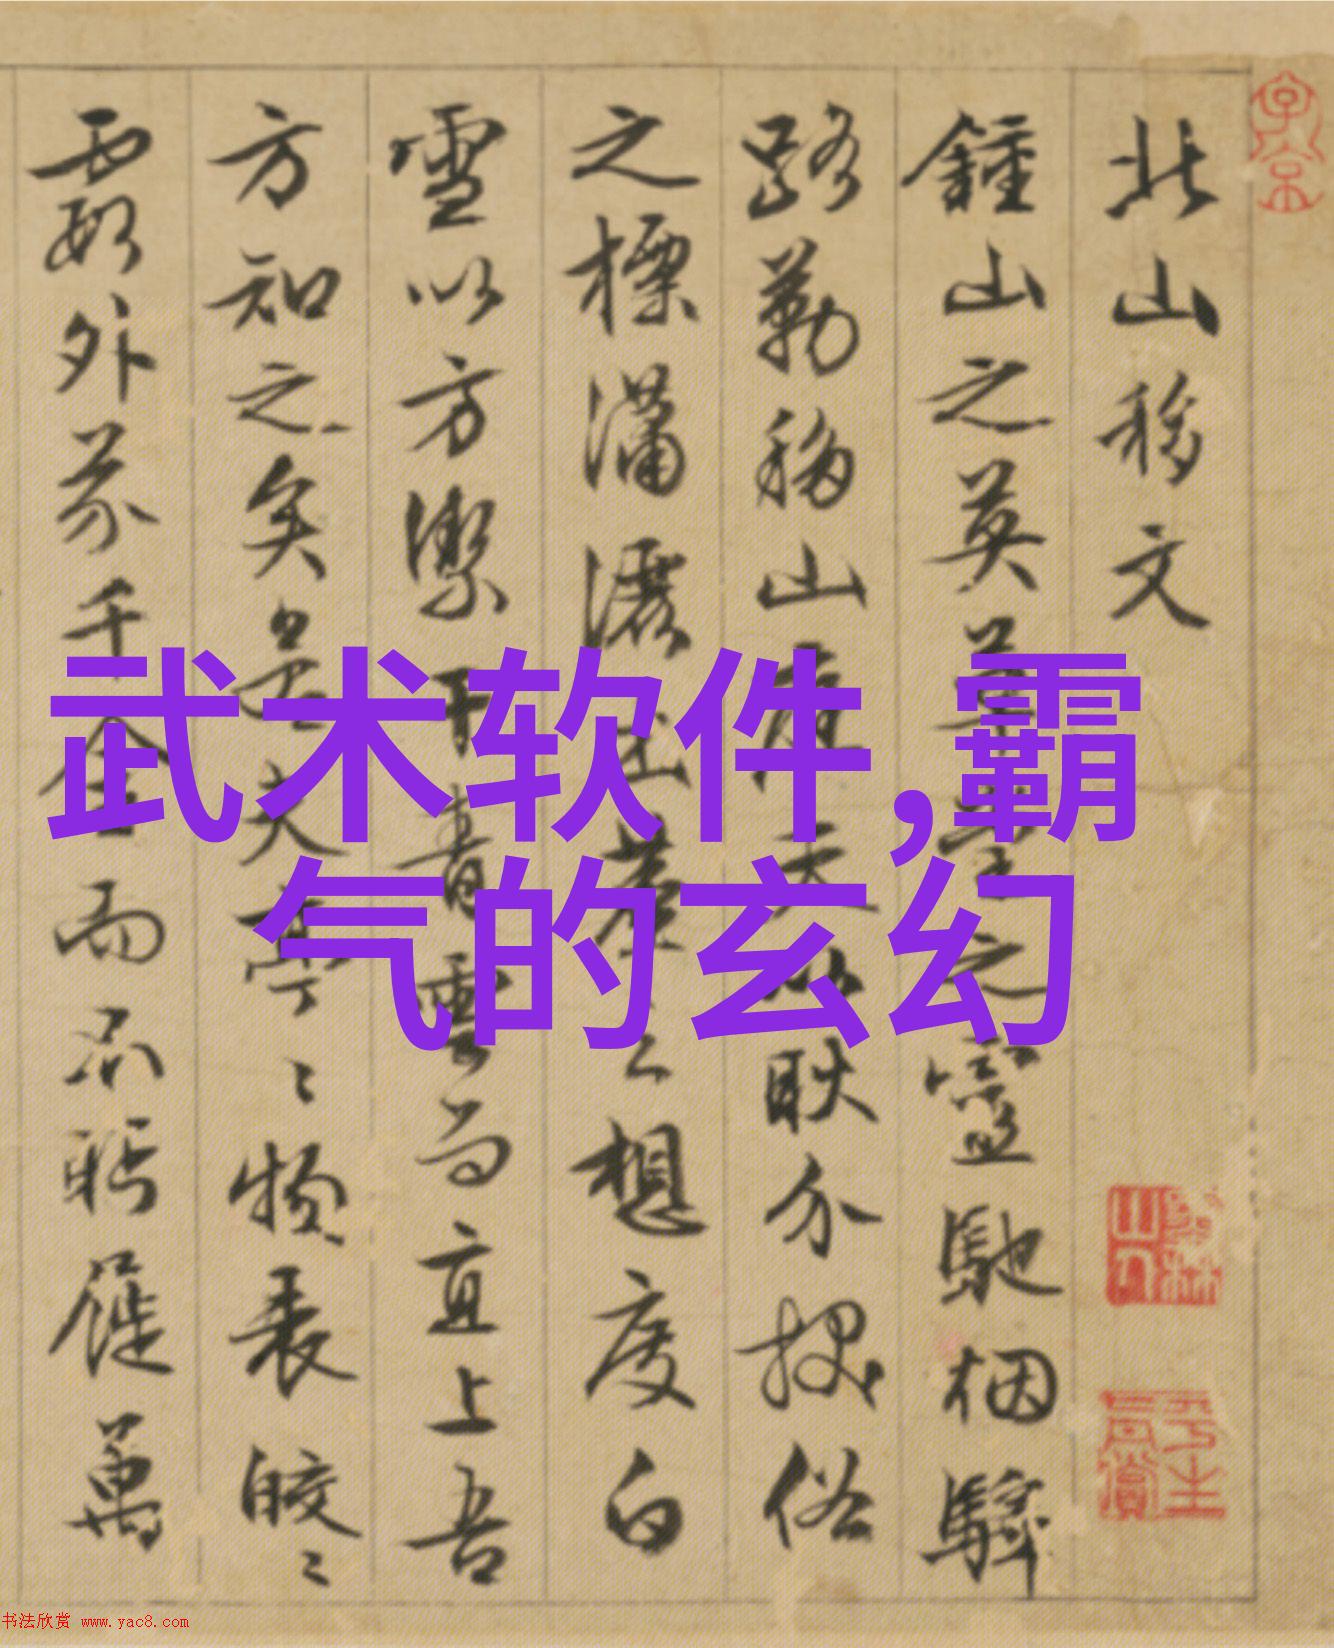 北山移文
鍾山之英草堂之靈馳烟驛
路勒移山庭夫以耿介拔俗
之標瀟灑出塵之想度白
雪以方潔干青雲而直上吾
方知之矣若夫亭〻物表皎〻
霞外芥千金而不眄屣萬
武术软件,霸
气的玄幻
书法欣赏 www.yac8.com